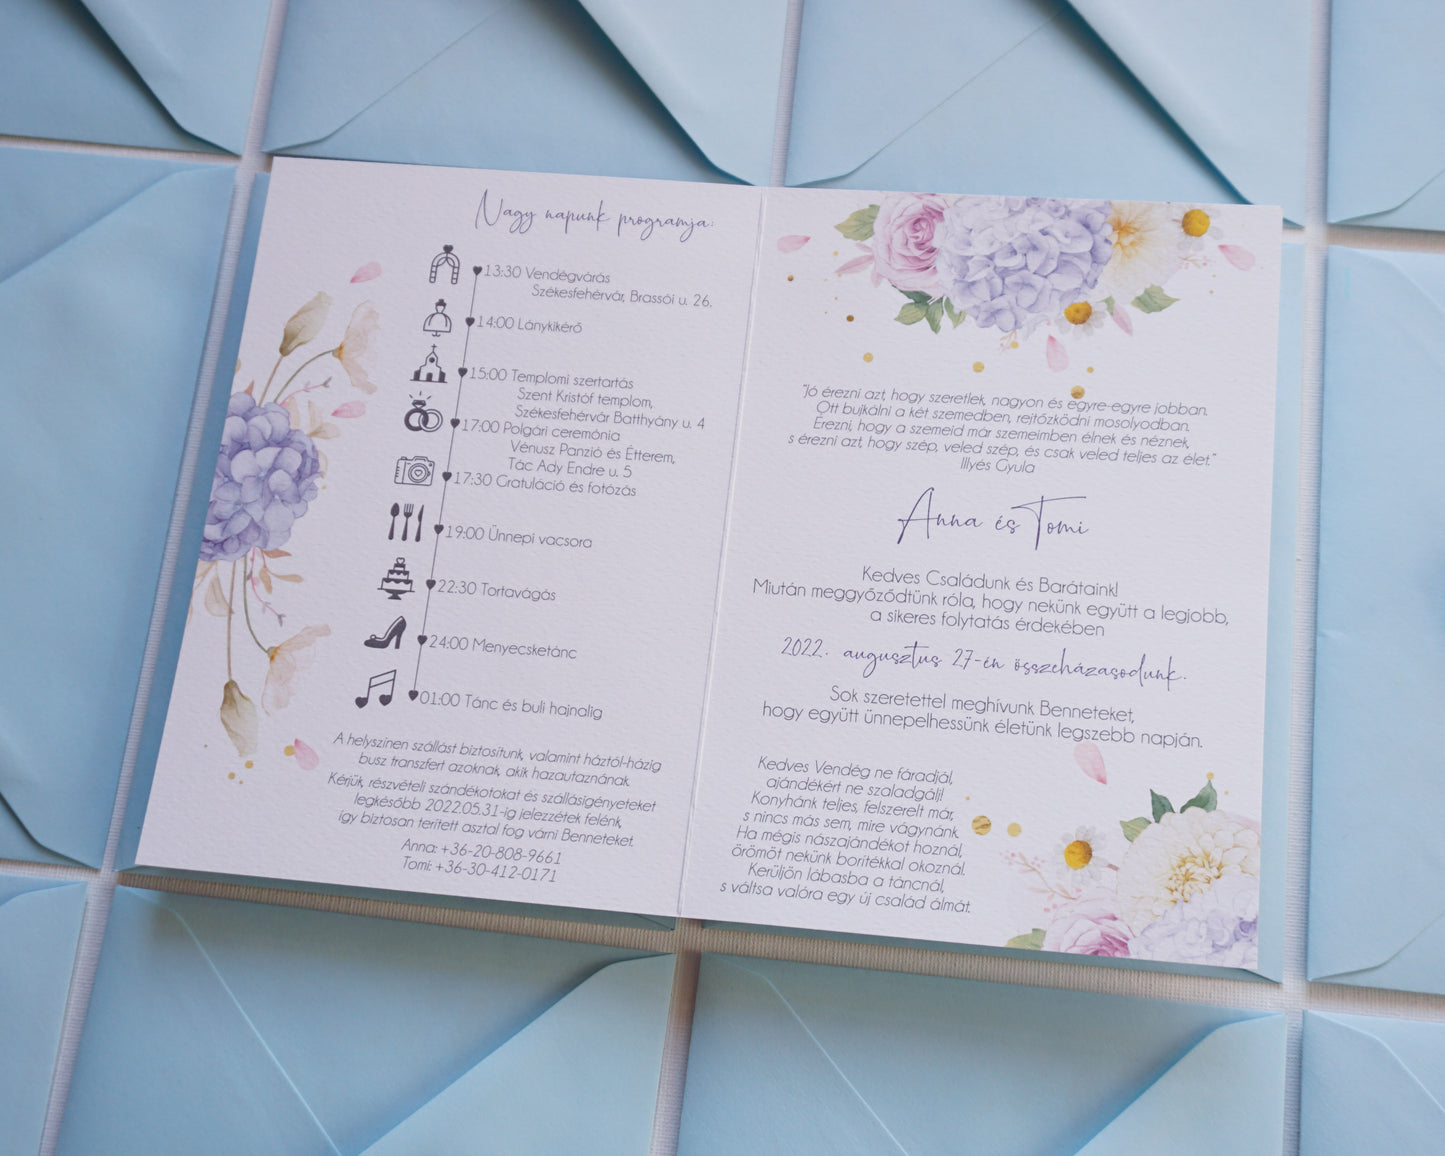 Nagy napunk programja:
13:30 Vendégvárás
Székesfehérvár, Brassói u. 26.
14:00 Lánykikérő
15:00 Templomi szertartás
Szent Kristóf templom,
Székesfehérvár Batthyány u. 4
17:00 Polgári ceremónia
Vénusz Panzió és Étterem,
Tác Ady Endre u. 5
17:30 Gratuláció és fotózás
19:00 Ünnepi vacsora
22:30 Tortavágás
24:00 Menyecsketánc
01:00 Tánc és buli hajnalig
A helyszínen szállást biztosítunk, valamint háztól-házig
busz transzfert azoknak, akik hazautaznának.
Kérjük, részvételi szándékotokat és szállásigényeteket
legkésőbb 2022.05.31-ig jelezzétek felénk,
így biztosan terített asztal fog várni Benneteket.
Anna: +36-20-808-9661
Tomi: +36-30-412-0171
"Jó érezni azt, hogy szeretlek, nagyon és egyre-egyre jobban.
Ott bujkálni a két szemedben, rejtőzködni mosolyodban.
Érezni, hogy a szemeid már szemeimben élnek és néznek,
s érezni azt, hogy szép, veled szép, és csak veled teljes az élet."
Illyés Gyula
Anna és Tomi
Kedves Családunk és Barátaink!
Miután meggyőződtünk róla, hogy nekünk együtt a legjobb,
a sikeres folytatás érdekében
2022. augusztus 27-én összeházasodunk.
Sok szeretettel meghívunk Benneteket,
hogy együtt ünnepelhessünk életünk legszebb napján.
Kedves Vendég ne fáradjál,
ajándékért ne szaladgálj!
Konyhánk teljes, felszerelt már,
s nincs más sem, mire vágynánk.
Ha mégis nászajándékot hoznál,
örömöt nekünk borítékkal okoznál.
Kerüljön lábasba a táncnál,
s váltsa valóra egy új család álmát.